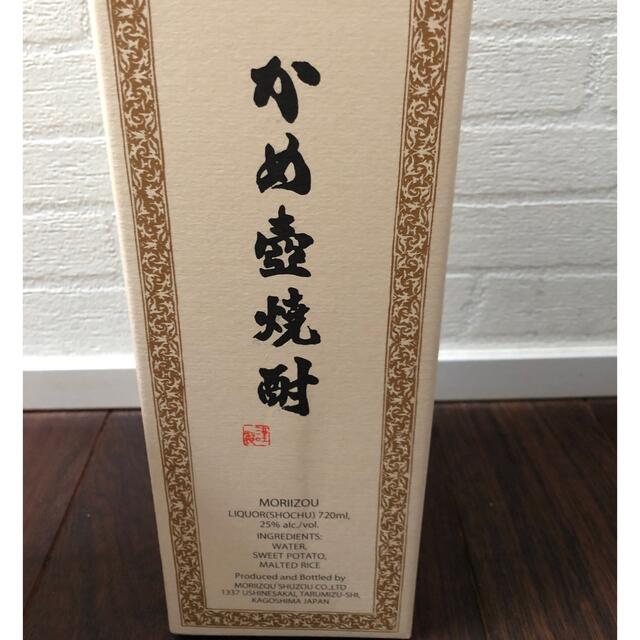 かめ壺焼酎
MORIIZOU
LIQUOR(SHOCHU) 720ml,
25% alc./vol.
INGREDIENTS:
WATER,
SWEET POTATO,
MALTED RICE
Produced and Bottled by
MORIIZOU SHUZOU CO.,LTD
1337 USHINESAKAI, TARUMIZU-SHI,
KAGOSHIMA JAPAN